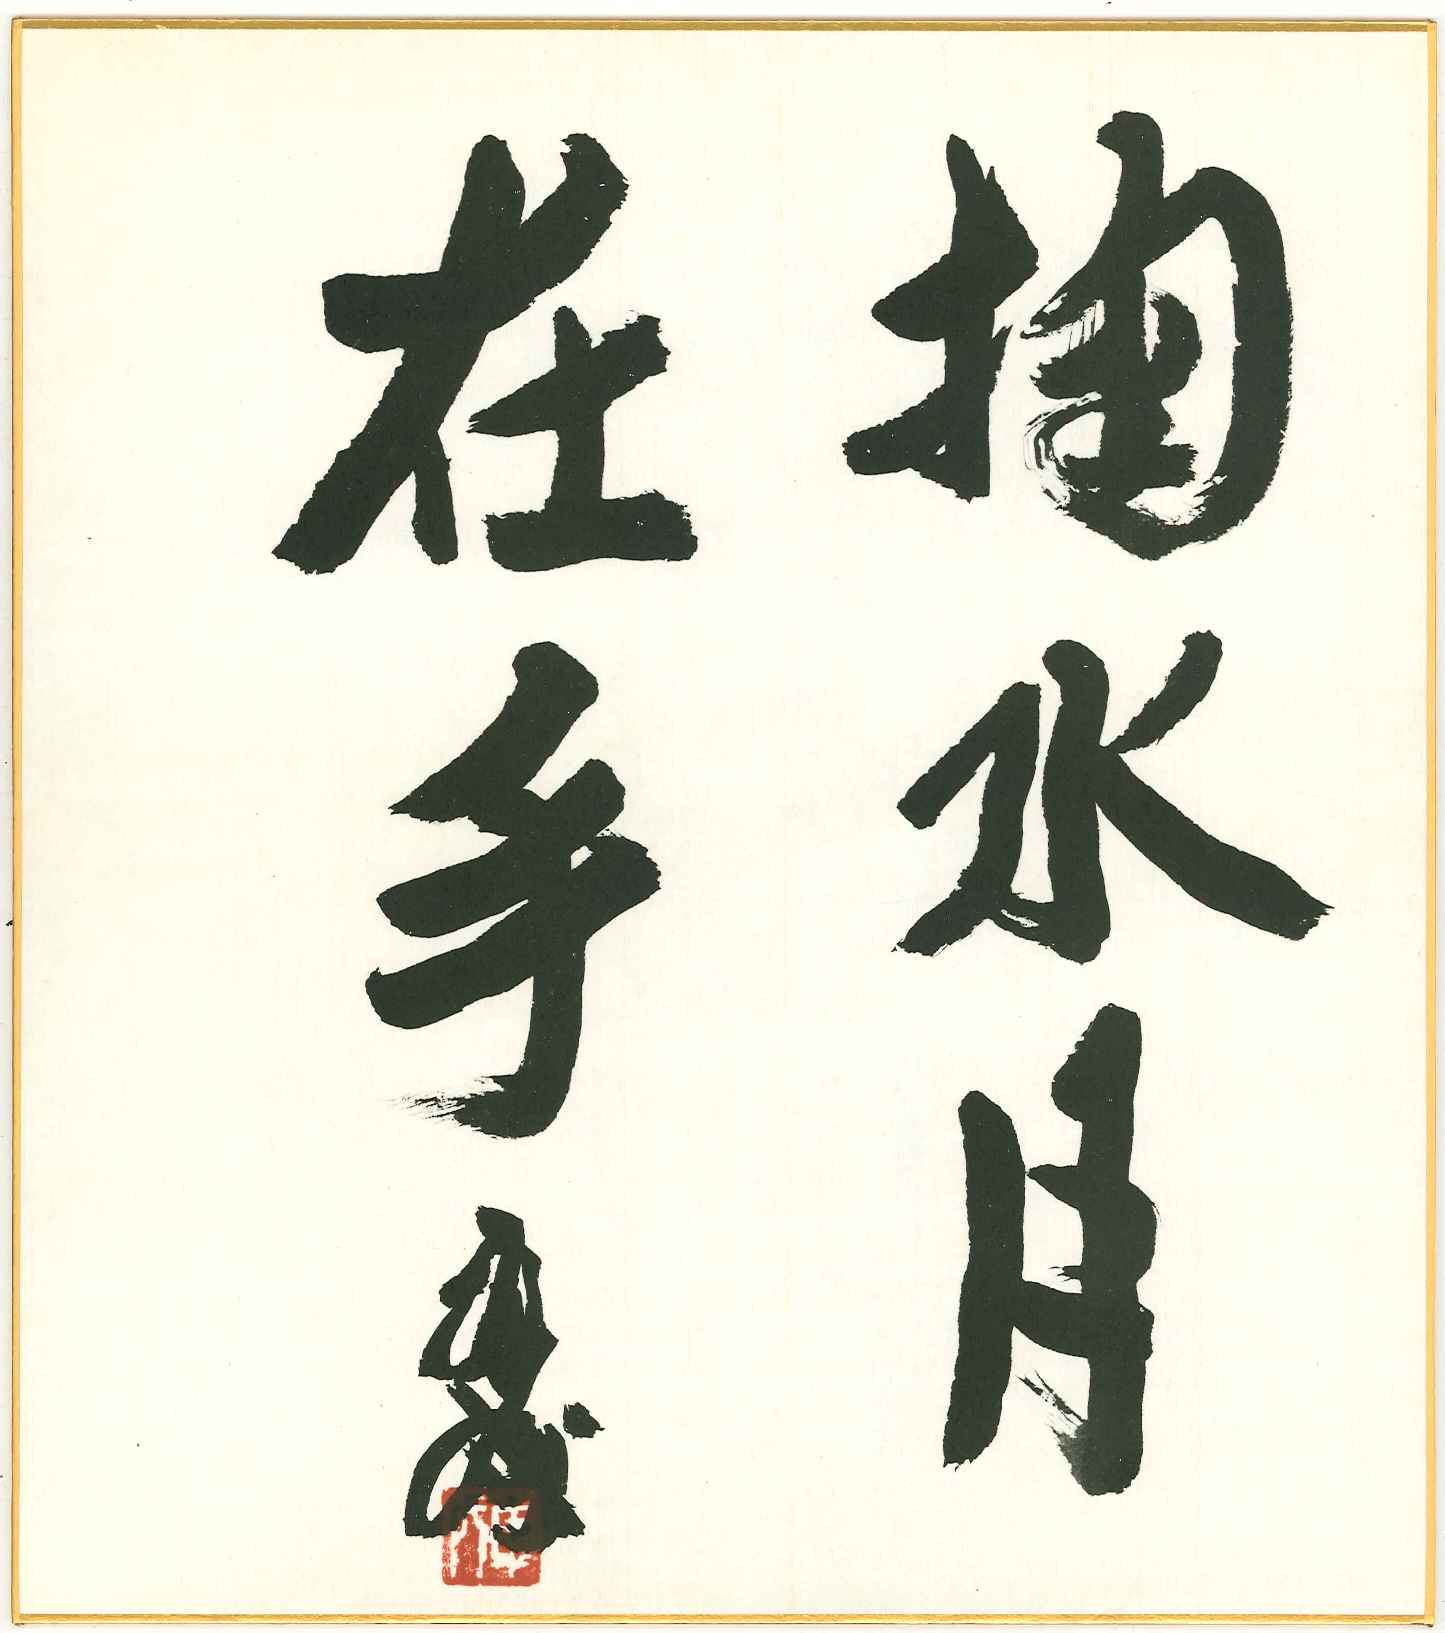 掬水月
在手